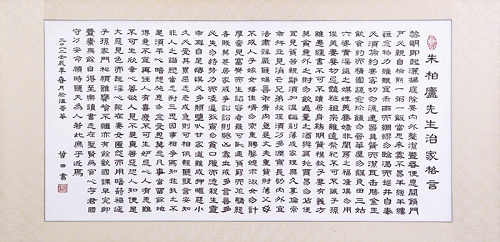 朱柏廬先生治家格言
黎明即起灑掃庭除要內外整潔既昏便息關鎖門
戶必親自檢點一粥一飯當思來處不易半絲半縷
恆念物力維艱宜未雨而綢繆勿臨渴而掘井自奉
必須儉約宴客切勿流連器具質而潔瓦缶勝金玉
飲食約而精園蔬愈珍饈勿營華屋勿謀良田三姑
六婆實淫盜之媒婢美妾嬌非閨房之福童僕勿用
俊美妻妾切忌艷妝祖宗雖遠祭祀不可不誠子孫
雖愚經書不可不讀居身務期質樸教子要有義方
莫貪意外之財莫飲過量之酒與肩挑貿易毋佔便
宜見貧苦親鄰須加溫恤刻薄成家理無久享倫常
乖舛立見消亡兄弟叔侄須分多潤寡長幼內外宜
法肅辭嚴聽婦言乖骨肉豈是丈夫重資財薄父母
不成人子嫁女擇佳婿毋索重聘娶媳求淑女勿計
厚奩見富貴而生諂容者最可恥遇貧窮而作驕態
者賤莫甚居家戒爭訟訟則終凶處世戒多言言多
必失勿恃勢力而凌逼孤寡毋貪口腹而恣殺生禽
乖僻自是悔誤必多頹惰自甘家道難成狎暱惡少
久必受其累屈志老成急則可相依輕聽發言安知
非人之譖訴當忍耐三思因事相爭焉知非我之不
是須平心暗想施惠無念受恩莫忘凡事當留餘地
得意不宜再往人有喜慶不可生妒忌心人有禍患
不可生欣幸心善欲人見不是真善惡恐人知便是
大惡見色而起淫心報在妻女匿怨而用暗箭禍延
子孫家門和順雖饔飧不繼亦有餘歡國課早完即
囊橐無餘自得至樂讀書志在聖賢為官心存君國
守分安命順時聽天為人若此庶乎近焉
年春月於溫哥華 曾田書